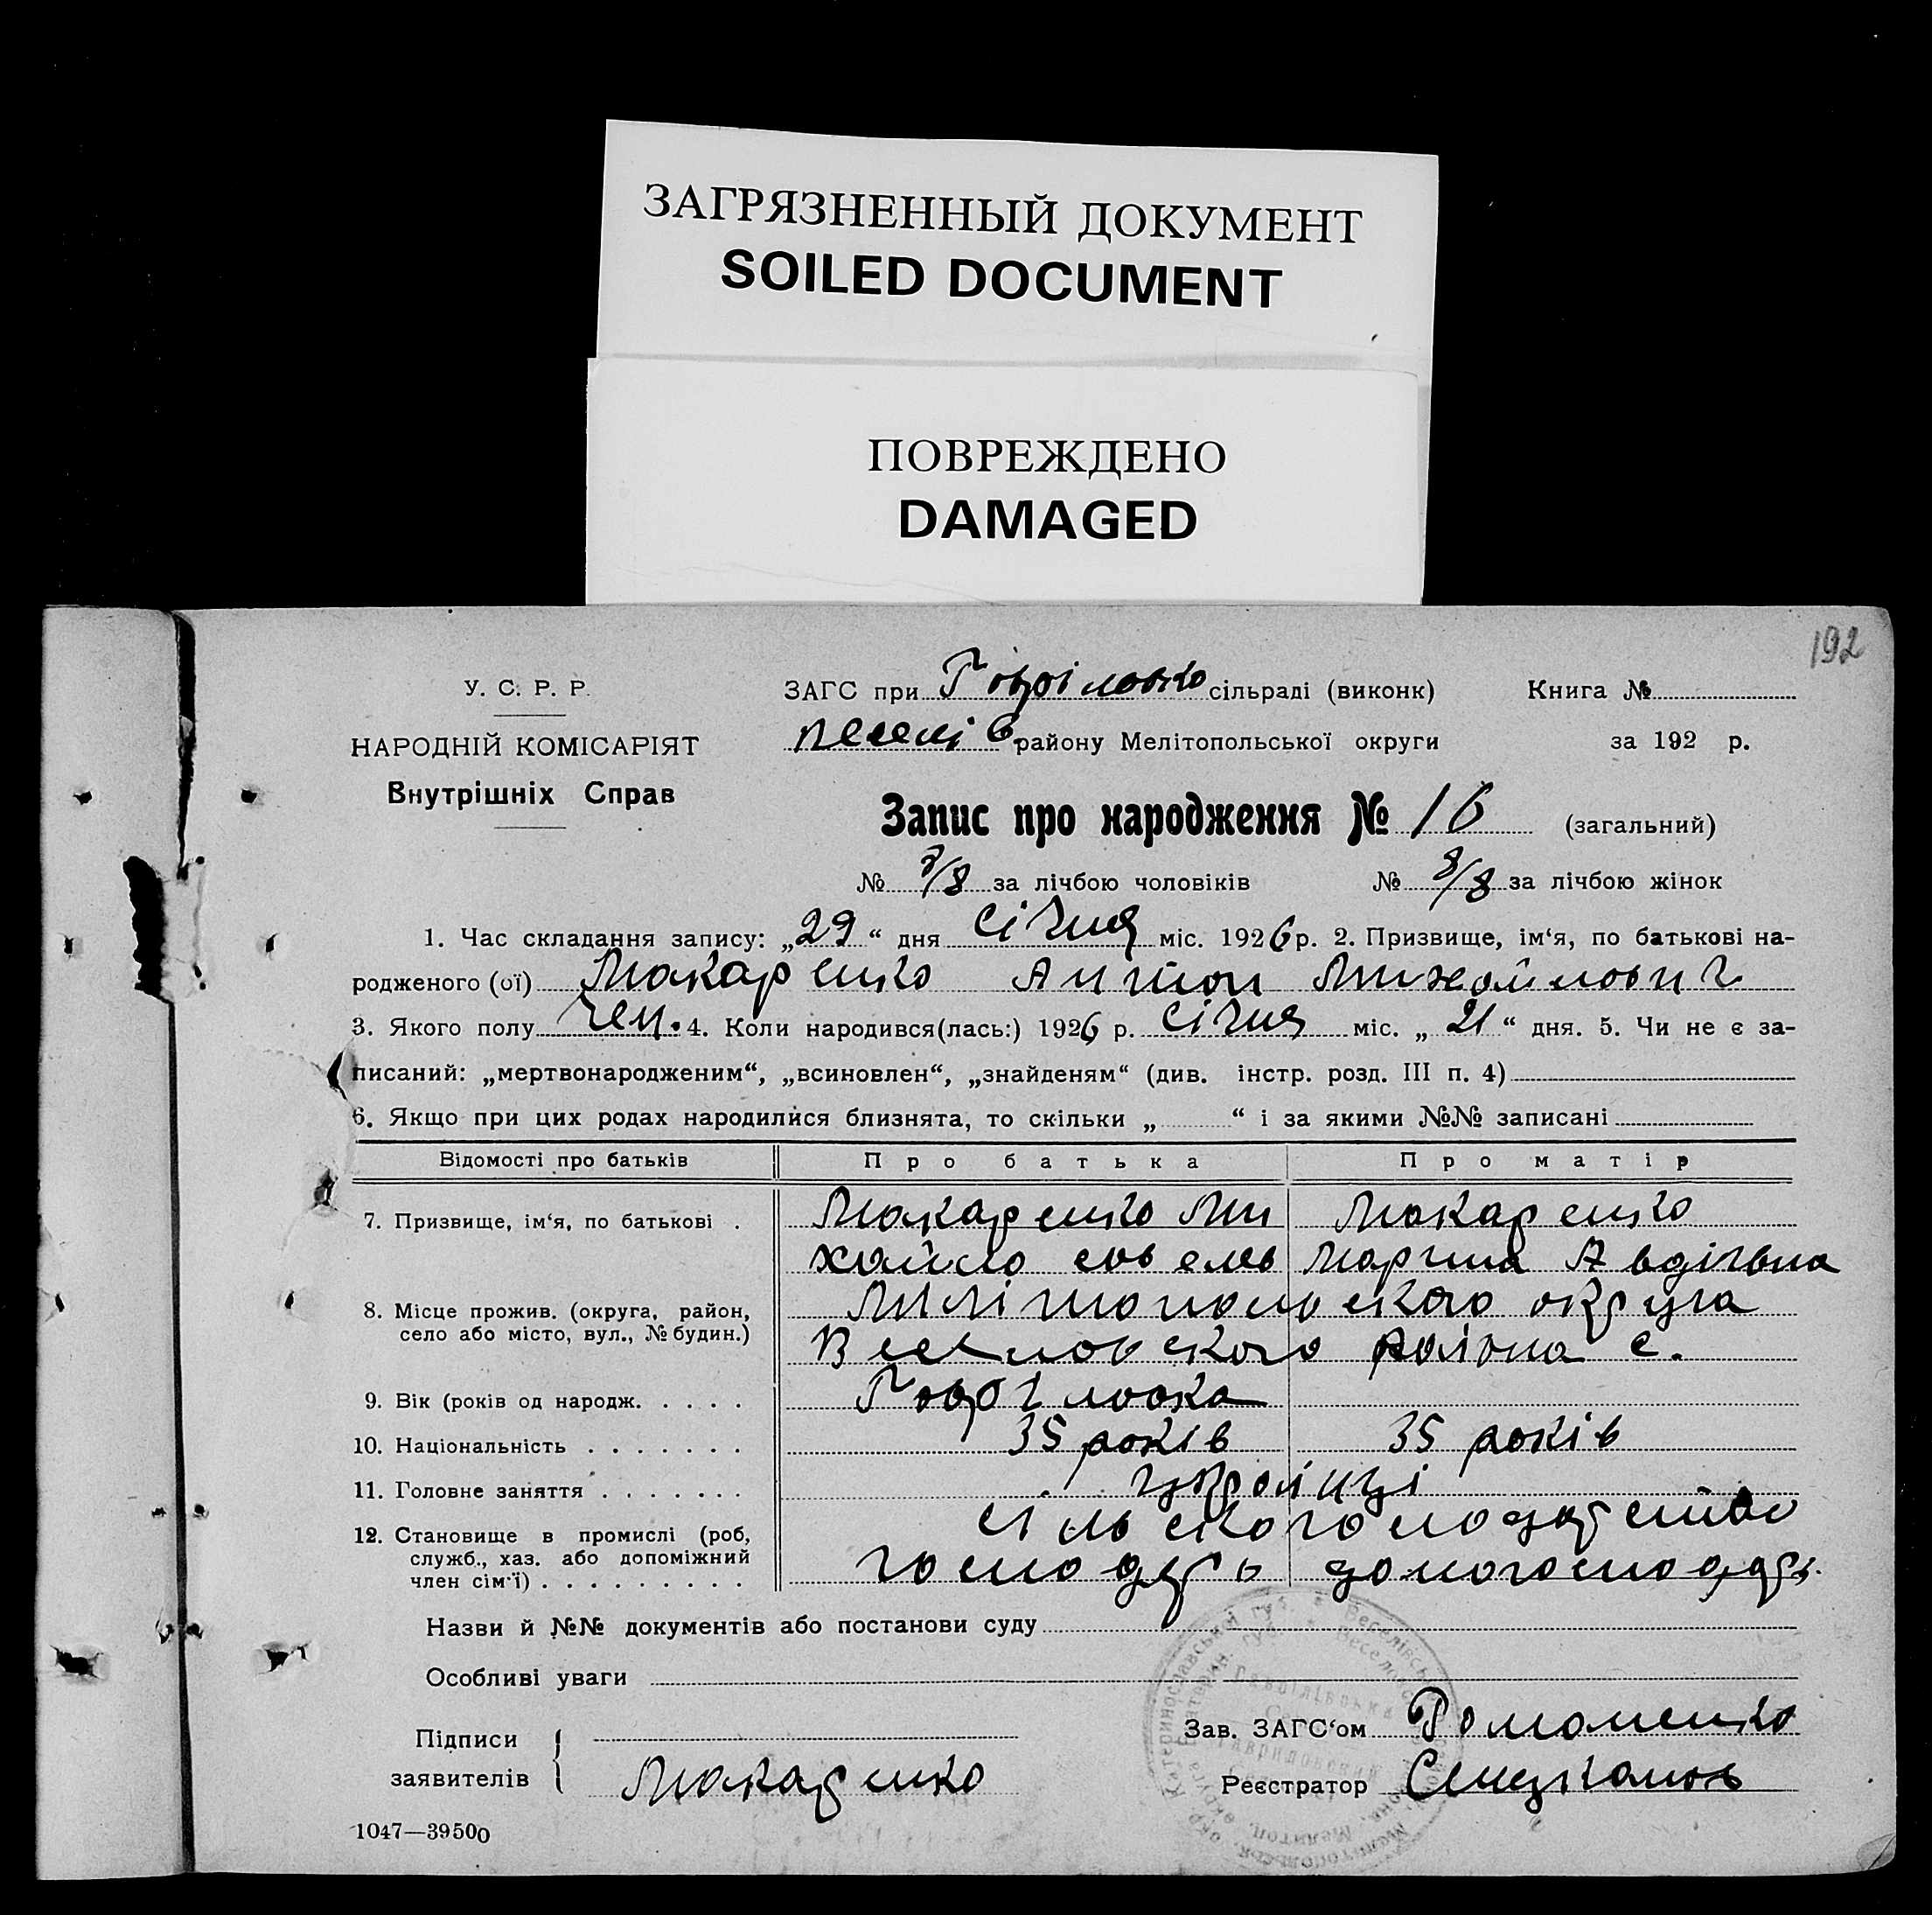 ЗАГРЯЗНЕННЫЙ ДОКУМЕНТ
SOILED DOCUMENT
ПОВРЕЖДЕНО
DAMAGED
192
У. С. Р. Р.
НАРОДНІЙ КОМІСАРІЯТ
Внутрішніх Справ
ЗАГС при сільраді (виконк) Книга №
району Мелітопольської округи за 192 р.
Запис про народження № 16 (загальний)
№ 8/8 за лічбою чоловіків № 8/8 за лічбою жінок
1. Час складання запису: „29“ дня січня міс. 1926 р. 2. Призвище, ім‘я, по батькові на-
родженого (ої) Макаренко Антон Михайлович
3. Якого полу чол. 4. Коли народився(лась:) 1926 р. січня міс. „21“ дня. 5. Чи не є за-
писаний: „мертвонародженим“, „всиновлен“, „знайденям“ (див. інстр. розд. III п. 4)
6. Якщо при цих родах народилися близнята, то скільки „ “ і за якими №№ записані
Відомості про батьків Про батька Про матір
7. Призвище, ім‘я, по батькові . Макаренко Ми Макаренко
хайло Марина
8. Місце прожив. (округа, район, село або місто, вул., № будин.) Мілітопольского округа
Веселовского района с.
9. Вік (років од народж. . . . .
10. Національність . . . . . . . 35 років 35 років
11. Головне заняття . . . . . . . українці
12. Становище в промислі (роб,
служб., хаз. або допоміжний
член сім‘ї) . . . . . . . . . господарь
Назви й №№ документів або постанови суду
Особливі уваги
Підписи
заявителів Макаренко
Зав. ЗАГС‘ом Романенко
Реєстратор
1047—39500